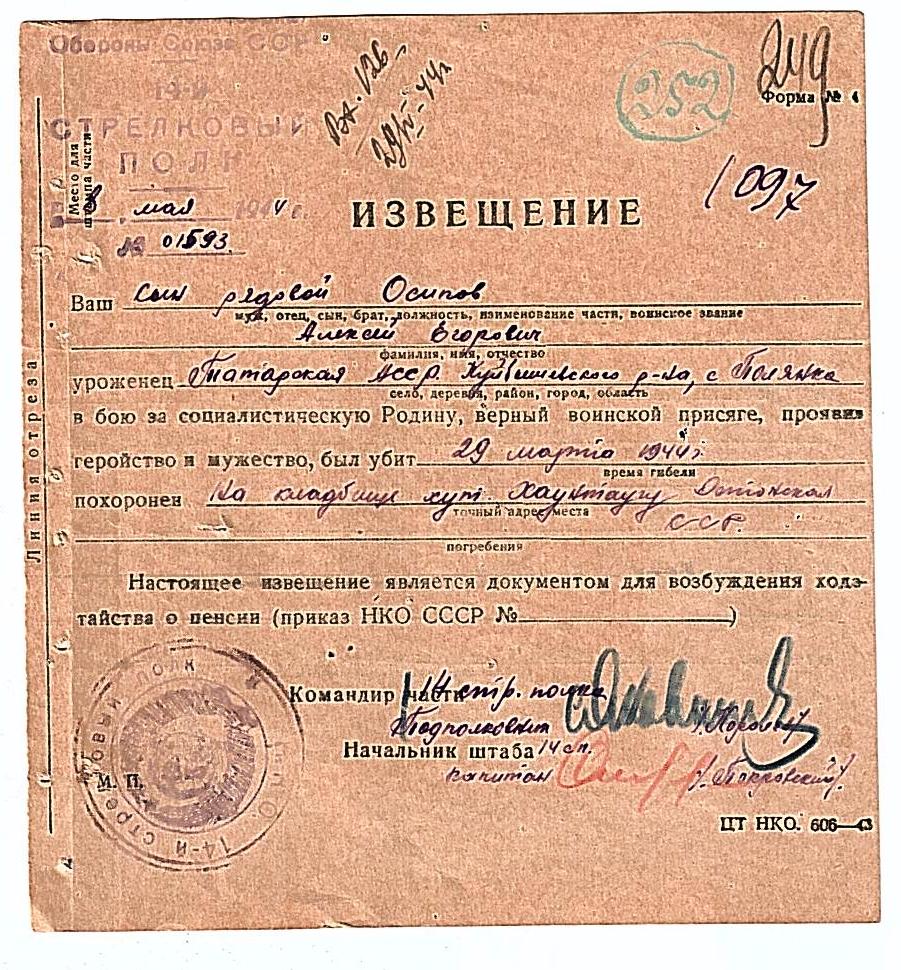 Обороны Союза ССР
14-й
СТРЕЛКОВЫЙ
ПОЛК
Место для
штампа части
8 мая 1944 г.
№ 01593.
Вх. 126
29/V-44г
252
249
Форма № 4
1097
ИЗВЕЩЕНИЕ
Ваш сын рядовой Осипов
муж, отец, сын, брат, должность, наименование части, воинское звание
Алексей Егорович
фамилия, имя, отчество
уроженец Татарская АССР Куйбышевского р-на, с Полянка
село, деревня, район, город, область
в бою за социалистическую Родину, верный воинской присяге, проявив
геройство и мужество, был убит 29 марта 1944 г.
время гибели
похоронен на кладбище хут. Хаунтаугу Эстонская
точный адрес места
ССР.
погребения
Настоящее извещение является документом для возбуждения хода-
тайства о пенсии (приказ НКО СССР № )
Командир части 14 стр. полка
Подполковник
Начальник штаба 14 сп.
капитан /Покровский/.
М. П.
14-й СТРЕЛКОВЫЙ ПОЛК
ЦТ НКО. 606—43
Линия отреза